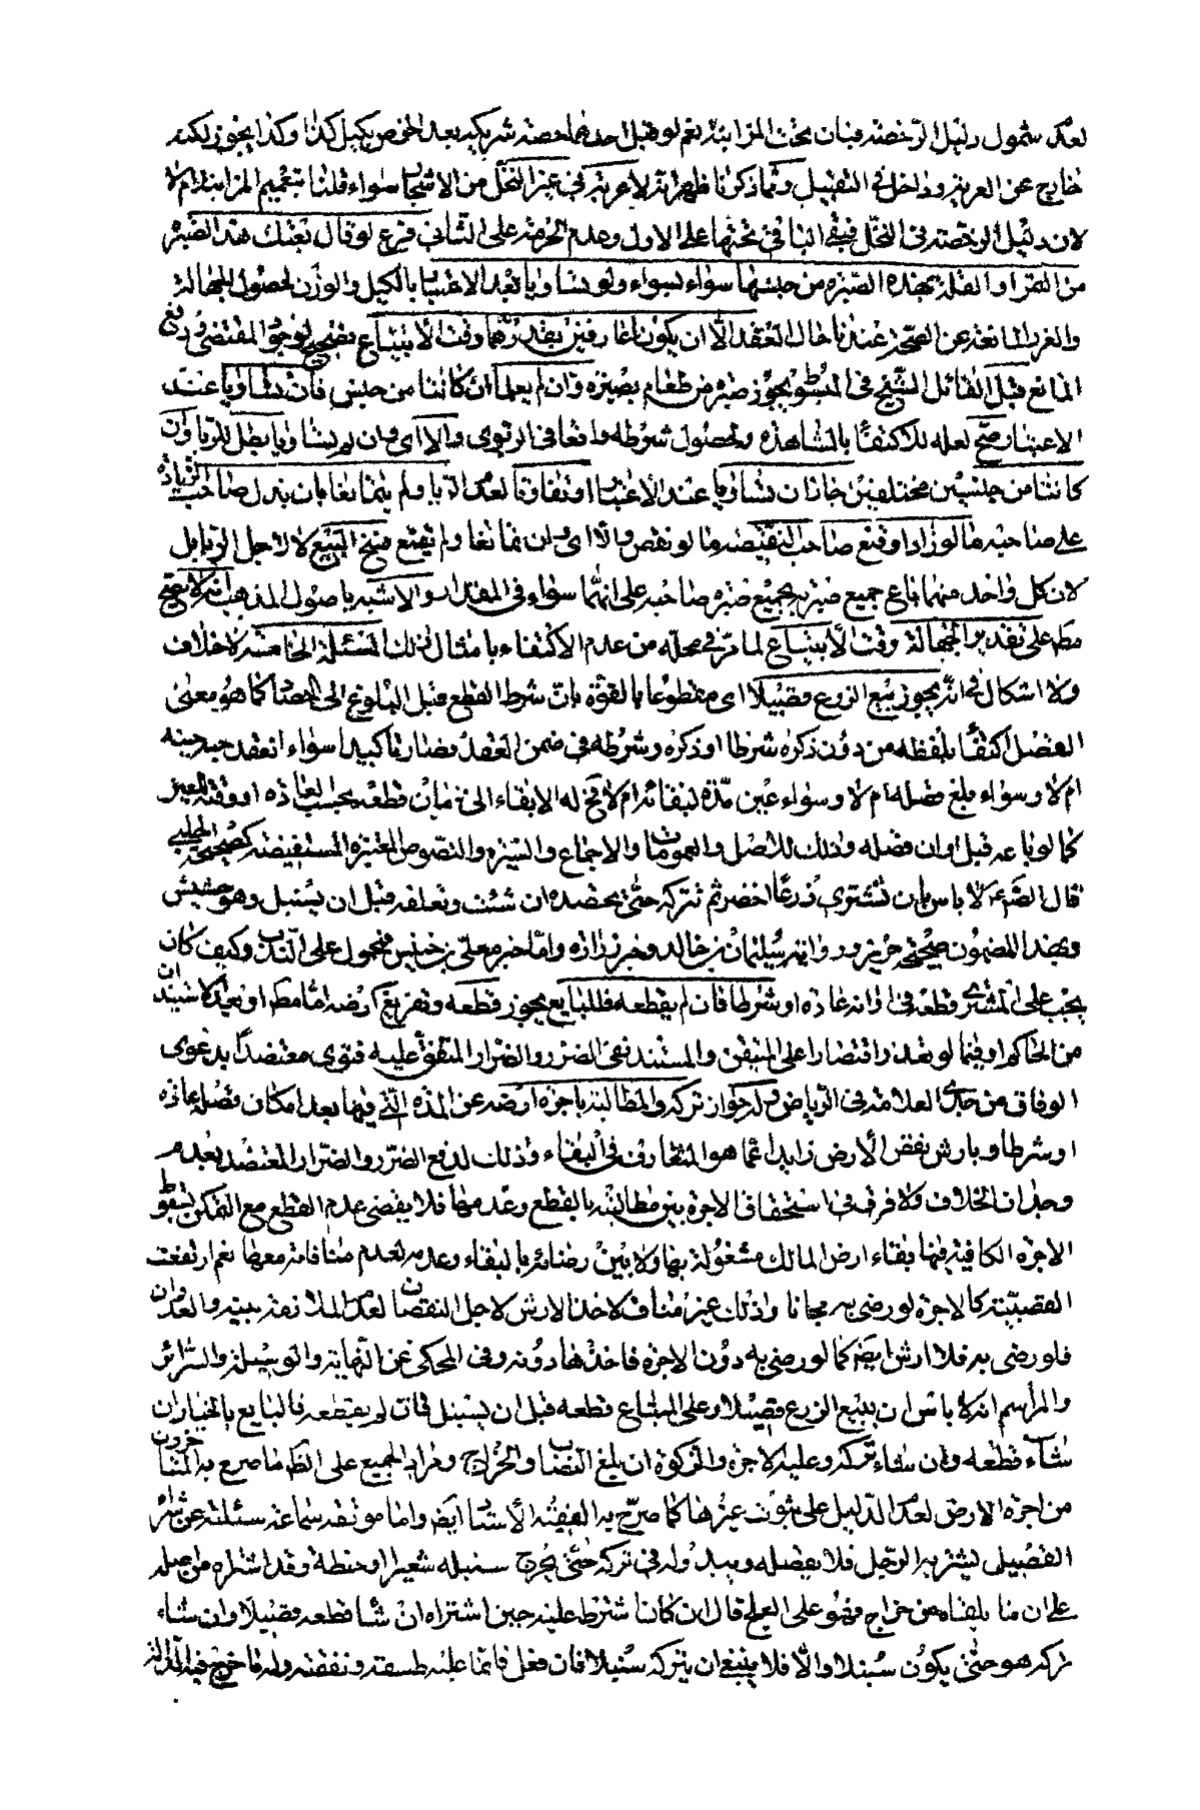 لعدم شمول دليل الرخصة فبان تحت المزابنة نعم لو قبل احدهما حصة شريكه بعد الخرص بكيل كذا وكذا يجوز لكنه
خارج عن العرية وداخل في التقبيل ومما ذكرنا ظهر انه لا عرية في غير النخل من الاشجار سواء قلنا بتعميم المزابنة ام لا
لان دليل الرخصة في النخل فيبقى الباقي تحتها على الاول وعدم الحرمة على الثاني فرع لو قال بعتك هذه الصبرة
من التمر او الغلة بهذه الصبرة من جنسها سواء بسواء ولو تساويا بعد الاعتبار بالكيل والوزن لحصول الجهالة
والغرر المانعة عن الصحة عندنا حال العقد الا ان يكونا عارفين بقدرهما وقت الابتياع فيصح لوجود المقتضي ورفع
المانع قيل القائل الشيخ في المبسوط يجوز صبرة من طعام بصبرة وان لم يعلما ان كانتا من جنس فان تساويا عند
الاعتبار صح لعله للاكتفاء بالمشاهدة ولحصول شروطه واقعا في الربوي والا اي وان لم يتساويا بطل للربا وان
كانتا من جنسين مختلفين جاز ان تساويا عند الاعتبار او تفاوتا لعدم الربا ولم يتمانعا بان بذل صاحب الزيادة
على صاحبه ما لو زاد او قنع صاحب النقيصة ما لو نقص والا اي وان تمانعا ولم يقنع فسخ البيع لا لاجل الربا بل
لان كل واحد منهما باع جميع صبرته بجميع صبرة صاحبه على انهما سواء في المقدار والاشبه باصول المذهب انه لا يصح
مط على تقدير الجهالة وقت الابتياع لما مر في محله من عدم الاكتفاء بامثال ذلك المسئلة الخامسة لا خلاف
ولا اشكال في انه يجوز بيع الزرع قصيلا اي مقطوعا بالقوة بان شرط القطع قبل البلوغ الى الحصاد كما هو معنى
القصل اكتفاء بلفظه من دون ذكره شرطا او ذكره وشرطه في ضمن العقد فصار تاكيدا سواء انعقد حبه حينه
ام لا وسواء بلغ فصله ام لا وسواء عين مدة لبقائه ام لا يجوز له الابقاء الى زمان قطعه بحسب العادة او وقته المعين
كما لو باعه قبل اوان فصله وذلك للاصل والعمومات والاجماع والسيرة والنصوص المعتبرة المستفيضة كصحيحة الحلبي
قال الصادق ع لا باس بان تشتري زرعا اخضر ثم تتركه حتى تحصده ان شئت وتعلفه قبل ان يسنبل وهو حشيش
وبهذا المضمون صحيحة حريز ورواية سليمان بن خالد وخبر زرارة واما خبر معلى بن خنيس فمحمول على الندب وكيف كان
يجب على المشتري قطعه في اوانه عادة او شرطا فان لم يقطعه فللبايع يجوز قطعه وتفريغ ارضه اما مط او بعد الاستيذان
من الحاكم او فيما لو تعذر اقتصارا على المتيقن والمستند نفي الضرر والضرار المتفق عليه فتوى معتضدا بدعوى
الوفاق من جدي العلامة في الرياض وله جواز تركه والمطالبة باجرة ارضه عن المدة التي فيها بعد امكان فصله عادة
او شرطا وبارش نقص الارض زايدا عما هو المتعارف في البقاء وذلك لدفع الضرر والضرار المعتضد بعدم
وجدان الخلاف ولا فرق في استحقاق الاجرة بين مطالبته بالقطع وعدمها فلا يقضي عدم القطع مع التمكن لسقوط
الاجرة الكافية فيها بقاء ارض المالك مشغولة بها ولا بين رضائه بالبقاء وعدمه لعدم منافاته معها نعم ارتفعت
الغصبية كالاجرة لو رضي به مجانا وذلك غير مناف لاخذ الارش لاجل النقصان لعدم الملازمة بينه والعدوان
فلو رضي به فلا ارش ايضا كما لو رضي به دون الاجرة فاخذها دونه وفي المحكي عن النهاية والوسيلة والسرائر
والمراسم انه لا باس ان يبيع الزرع قصيلا وعلى المبتاع قطعه قبل ان يسنبل فان لم يقطعه فالبايع بالخيار ان
شاء قطعه وان شاء تركه وعليه الاجرة والزكوة ان بلغ النصاب والخراج ومراد الجميع على الظ ما صرح به المتاخرون
من اجرة الارض لعدم الدليل على ثبوت غيرها كما صرح به الفقيه الاستاد ايضا واما موثقة سماعة سئلته عن شراء
القصيل يشتريه الرجل فلا يقصله ويبدو له في تركه حتى يخرج سنبله شعيرا او حنطة وقد اشتراه من اصله
على ان ما يلقاه من خراج فهو على العلج قال ان كان اشترط عليه حين اشتراه ان شاء قطعه قصيلا وان شاء
تركه هو حتى يكون سنبلا والا فلا ينبغي ان يتركه سنبلا فان فعل فانما عليه طسقه ونفقته وله ما خرج فيه الدالة